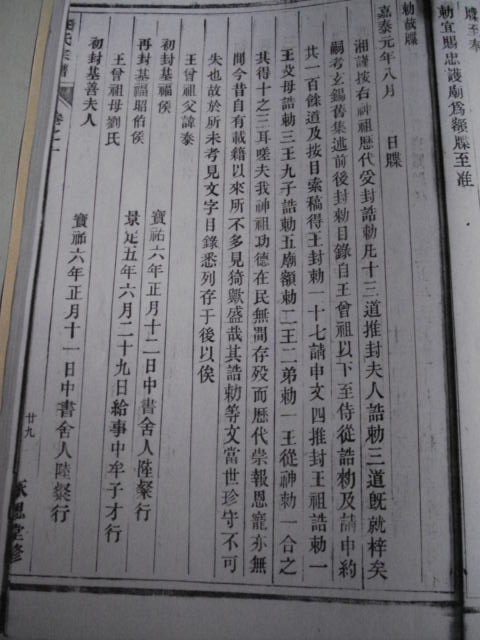 牒至奉
勅宜賜忠護廟爲額牒至准
勅故牒
嘉泰元年八月　日牒
湘謹按右神祖歷代受封誥勅凡十三道推封夫人誥勅三道旣就梓矣
嗣考玄錫舊集述前後封勅目錄自王曾祖以下至侍從誥勅及請申約
共一百餘道及按目索稿得王封勅一十七請申文四推封王祖誥勅一
王父母誥勅三王九子誥勅五廟額勅二王二弟勅一王從神勅一合之
其得十之三耳嗟夫我神祖功德在民無間存殁而歷代崇報恩寵亦無
間今昔自有載籍以來所不多見猗歟盛哉其誥勅等文當世珍守不可
失也故於所未考見文字目錄悉列存于後以俟
王曾祖父諱泰
初封基福侯　寶祐六年正月十二日中書舍人陸粲行
再封基福昭佑侯　景定五年六月二十九日給事中牟子才行
王曾祖母劉氏
初封基善夫人　寶祐六年正月十一日中書舍人陸粲行
氏宗譜
卷之一
廿九
思堂修